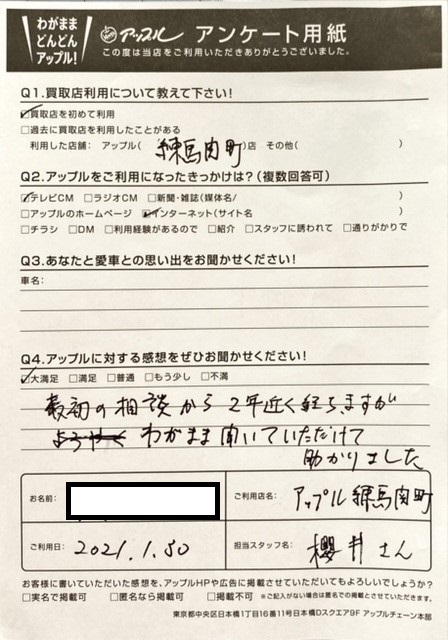 わがまま
どんどん
アップル!
アップル アンケート用紙
この度は当店をご利用いただきありがとうございました。
Q1.買取店利用について教えて下さい!
☑買取店を初めて利用
□過去に買取店を利用したことがある
利用した店舗: アップル(練馬関町)店 その他( )
Q2.アップルをご利用になったきっかけは?(複数回答可)
☑テレビCM □ラジオCM □新聞・雑誌(媒体名/ )
□アップルのホームページ ☑インターネット(サイト名 )
□チラシ □DM □利用経験があるので □紹介 □スタッフに誘われて □通りがかりで
Q3.あなたと愛車との思い出をお聞かせください!
車名:
Q4.アップルに対する感想をぜひお聞かせください!
☑大満足 □満足 □普通 □もう少し □不満
最初の相談から2年近く経ちますが
ようやく わがまま聞いていただけて
助かりました
お名前:
ご利用店名: アップル練馬関町
ご利用日: 2021.1.30
担当スタッフ名: 櫻井さん
お客様に書いていただいた感想を、アップルHPや広告に掲載させていただいてもよろしいでしょうか?
□実名で掲載可 □匿名なら掲載可 □掲載不可 ※ご記入がない場合は匿名での掲載とさせていただきます。
東京都中央区日本橋1丁目16番11号日本橋Dスクエア9F アップルチェーン本部